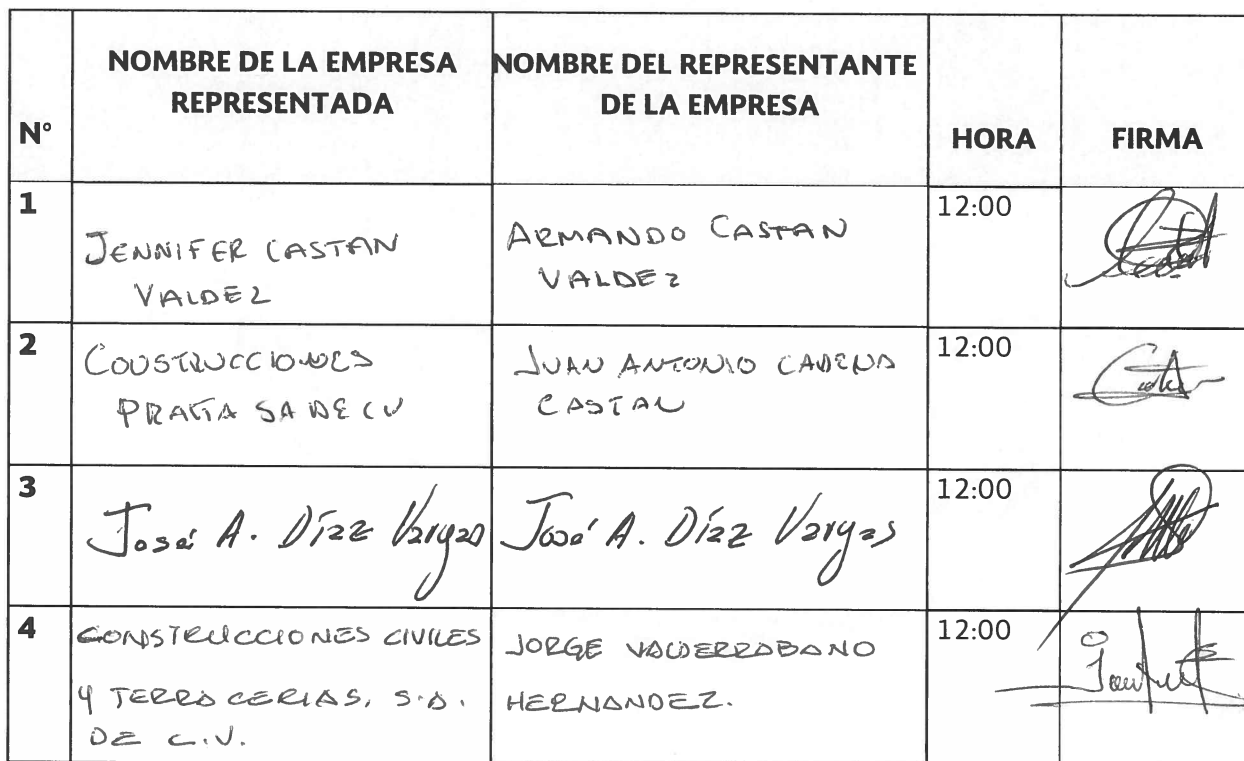 NOMBRE DE LA EMPRESA REPRESENTADA
NOMBRE DEL REPRESENTANTE DE LA EMPRESA
N°
HORA
FIRMA
1
JENNIFER CASTAN
VALDEZ
ARMANDO CASTAN
VALDEZ
12:00
2
CONSTRUCCIONES
SA DE CV
JUAN ANTONIO CADENA
CASTAN
12:00
3
José A. Díaz Vargas
José A. Díaz Vargas
12:00
4
CONSTRUCCIONES CIVILES
Y TERRACERIAS, S.A.
DE C.V.
JORGE VALDERRABANO
HERNANDEZ.
12:00